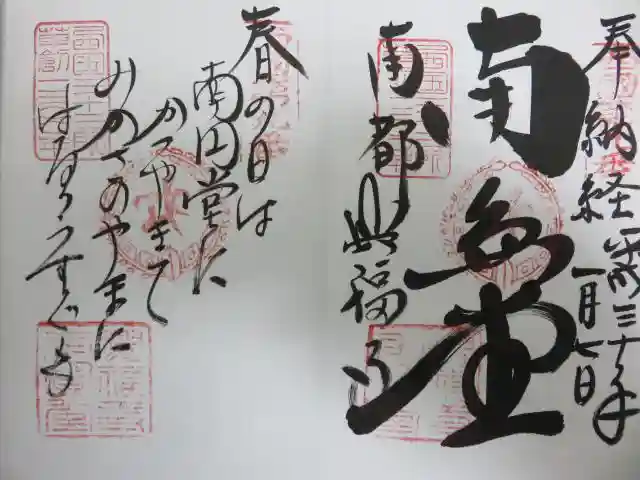 奉納経 平成三十年
一月七日
南圓堂
南都 興福寺
春の日は
南円堂に
かゞやきて
みかさのやまに
はるゝうすぐも